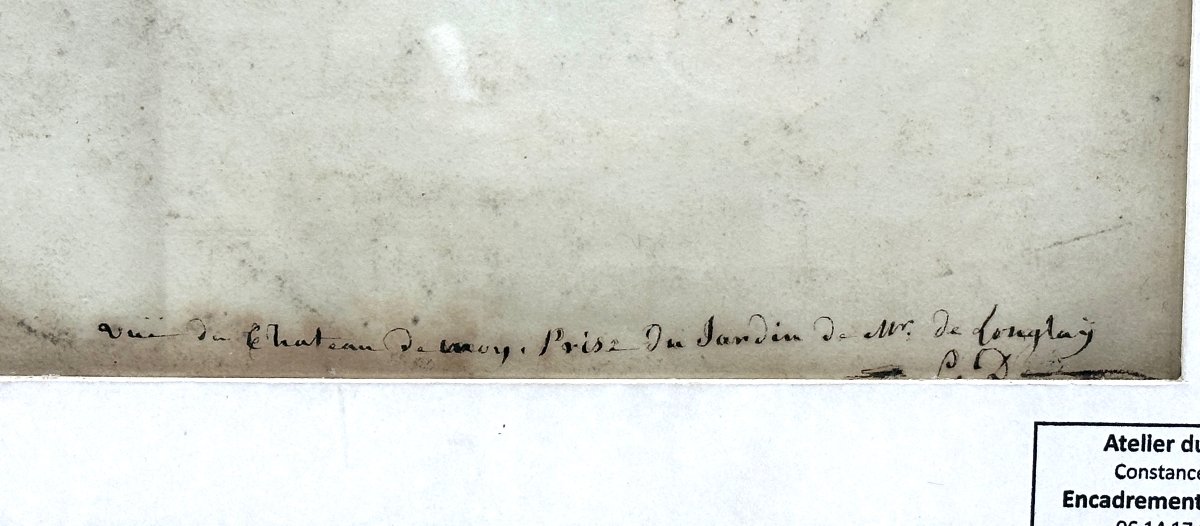 vuë du Chateau de moy. Prise du Jardin de Mr. de Longlaÿ
C. D
Atelier du
Constance
Encadrement